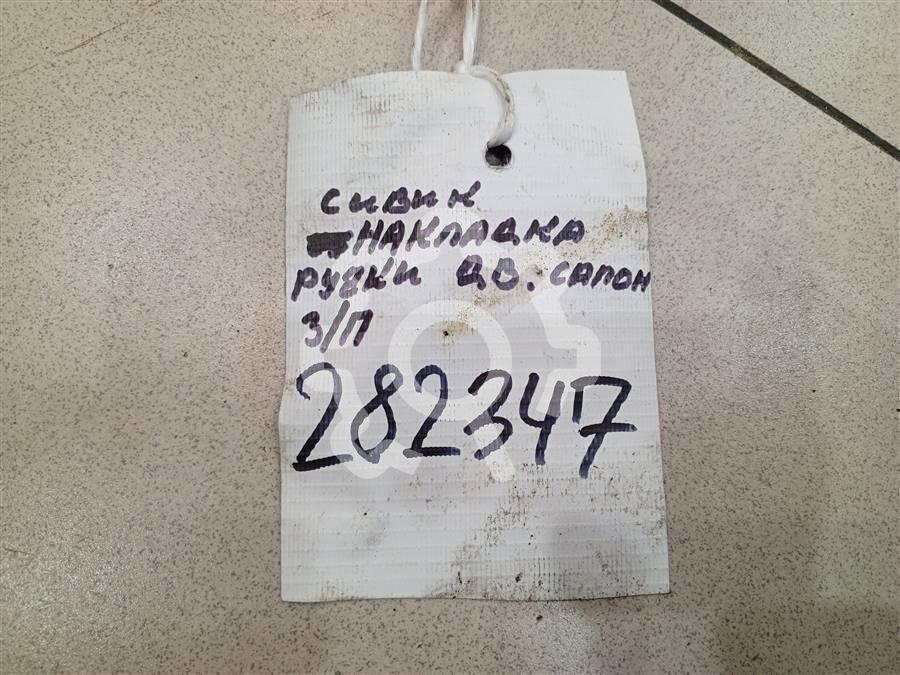 Сивик
НАКЛАДКА
РУЧКИ ДВ. САЛОН
З/П
282347